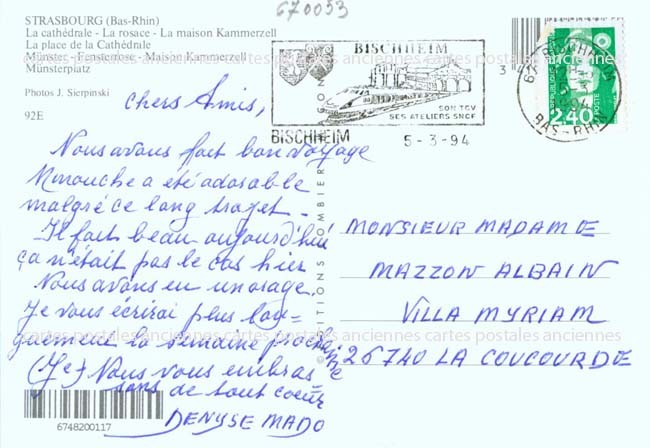 670053
STRASBOURG (Bas-Rhin)
La cathédrale - La rosace - La maison Kammerzell
La place de la Cathédrale
Münster - Fensterrose - Maison Kammerzell
Münsterplatz
Photos J. Sierpinski
92E
BISCHHEIM
SON TGV
SES ATELIERS SNCF
BISCHHEIM
5-3-94
BISCHHEIM
BAS-RHIN
2,40
POSTE
Chers Amis,
Nous avons fait bon voyage
Minouche a été adorable
malgré ce long trajet.
Il fait beau aujourd'hui
ça n'était pas le cas hier
Nous avons eu un orage.
Je vous écrirai plus lon-
guement la semaine prochaine
(Je) Nous vous embras
sons de tout coeur
DENYSE MADO
MONSIEUR MADAME
MAZZON ALBAIN
VILLA MYRIAM
26740 LA COUCOURDE
cartes postales anciennes cartes postales anciennes cartes postales anciennes
6748200117